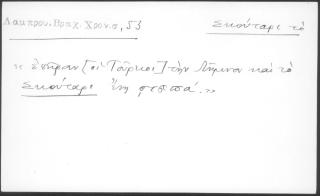 Λαμπρου. Βραχ. Χρον. σ, 53
Σκούταρι τὸ
« ἐπῆραν [οἱ Τοῦρκοι] τὴν Λῆμνον καὶ τὸ
Σκούταρι ἔτη